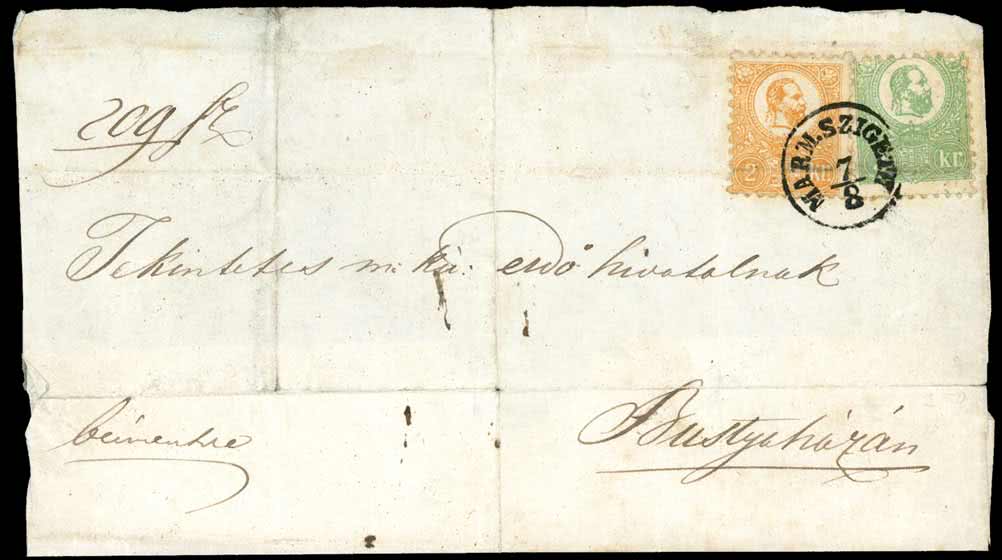 209 sz
MARM. SZIGETH
7/8
2 kr
kr
Tekintetes m. kir. erdő hivatalnak
bérmentve
Bustyaházán